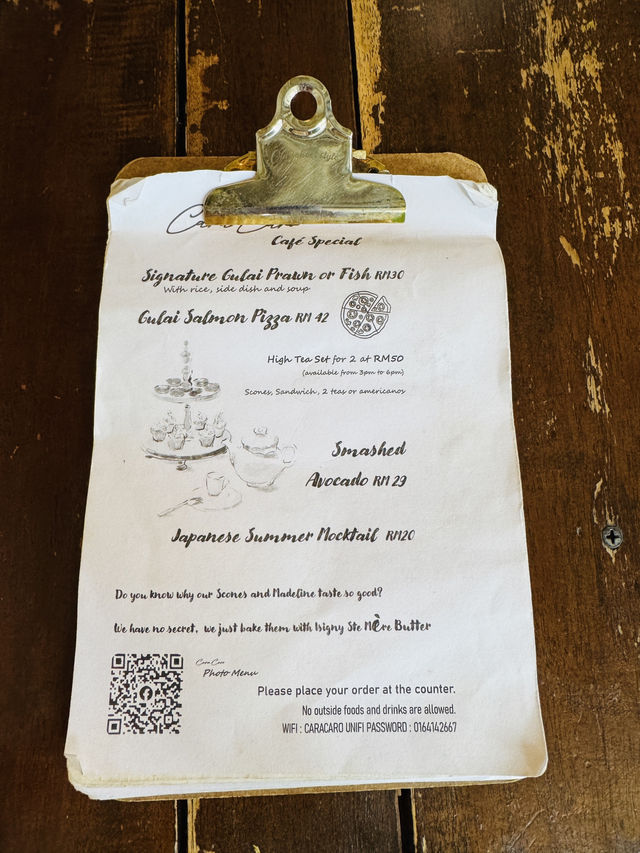 Café Special
Signature Gulai Prawn or Fish RM30
With rice, side dish and soup
Gulai Salmon Pizza RM 42
High Tea Set for 2 at RM50
(available from 3pm to 6pm)
Scones, Sandwich, 2 teas or americanos
Smashed
Avocado RM 29
Japanese Summer Mocktail RM20
Do you know why our Scones and Madeline taste so good?
We have no secret, we just bake them with Isigny Ste Mère Butter
Cara Caro
Photo Menu
Please place your order at the counter.
No outside foods and drinks are allowed.
WIFI : CARACARO UNIFI PASSWORD : 0164142667